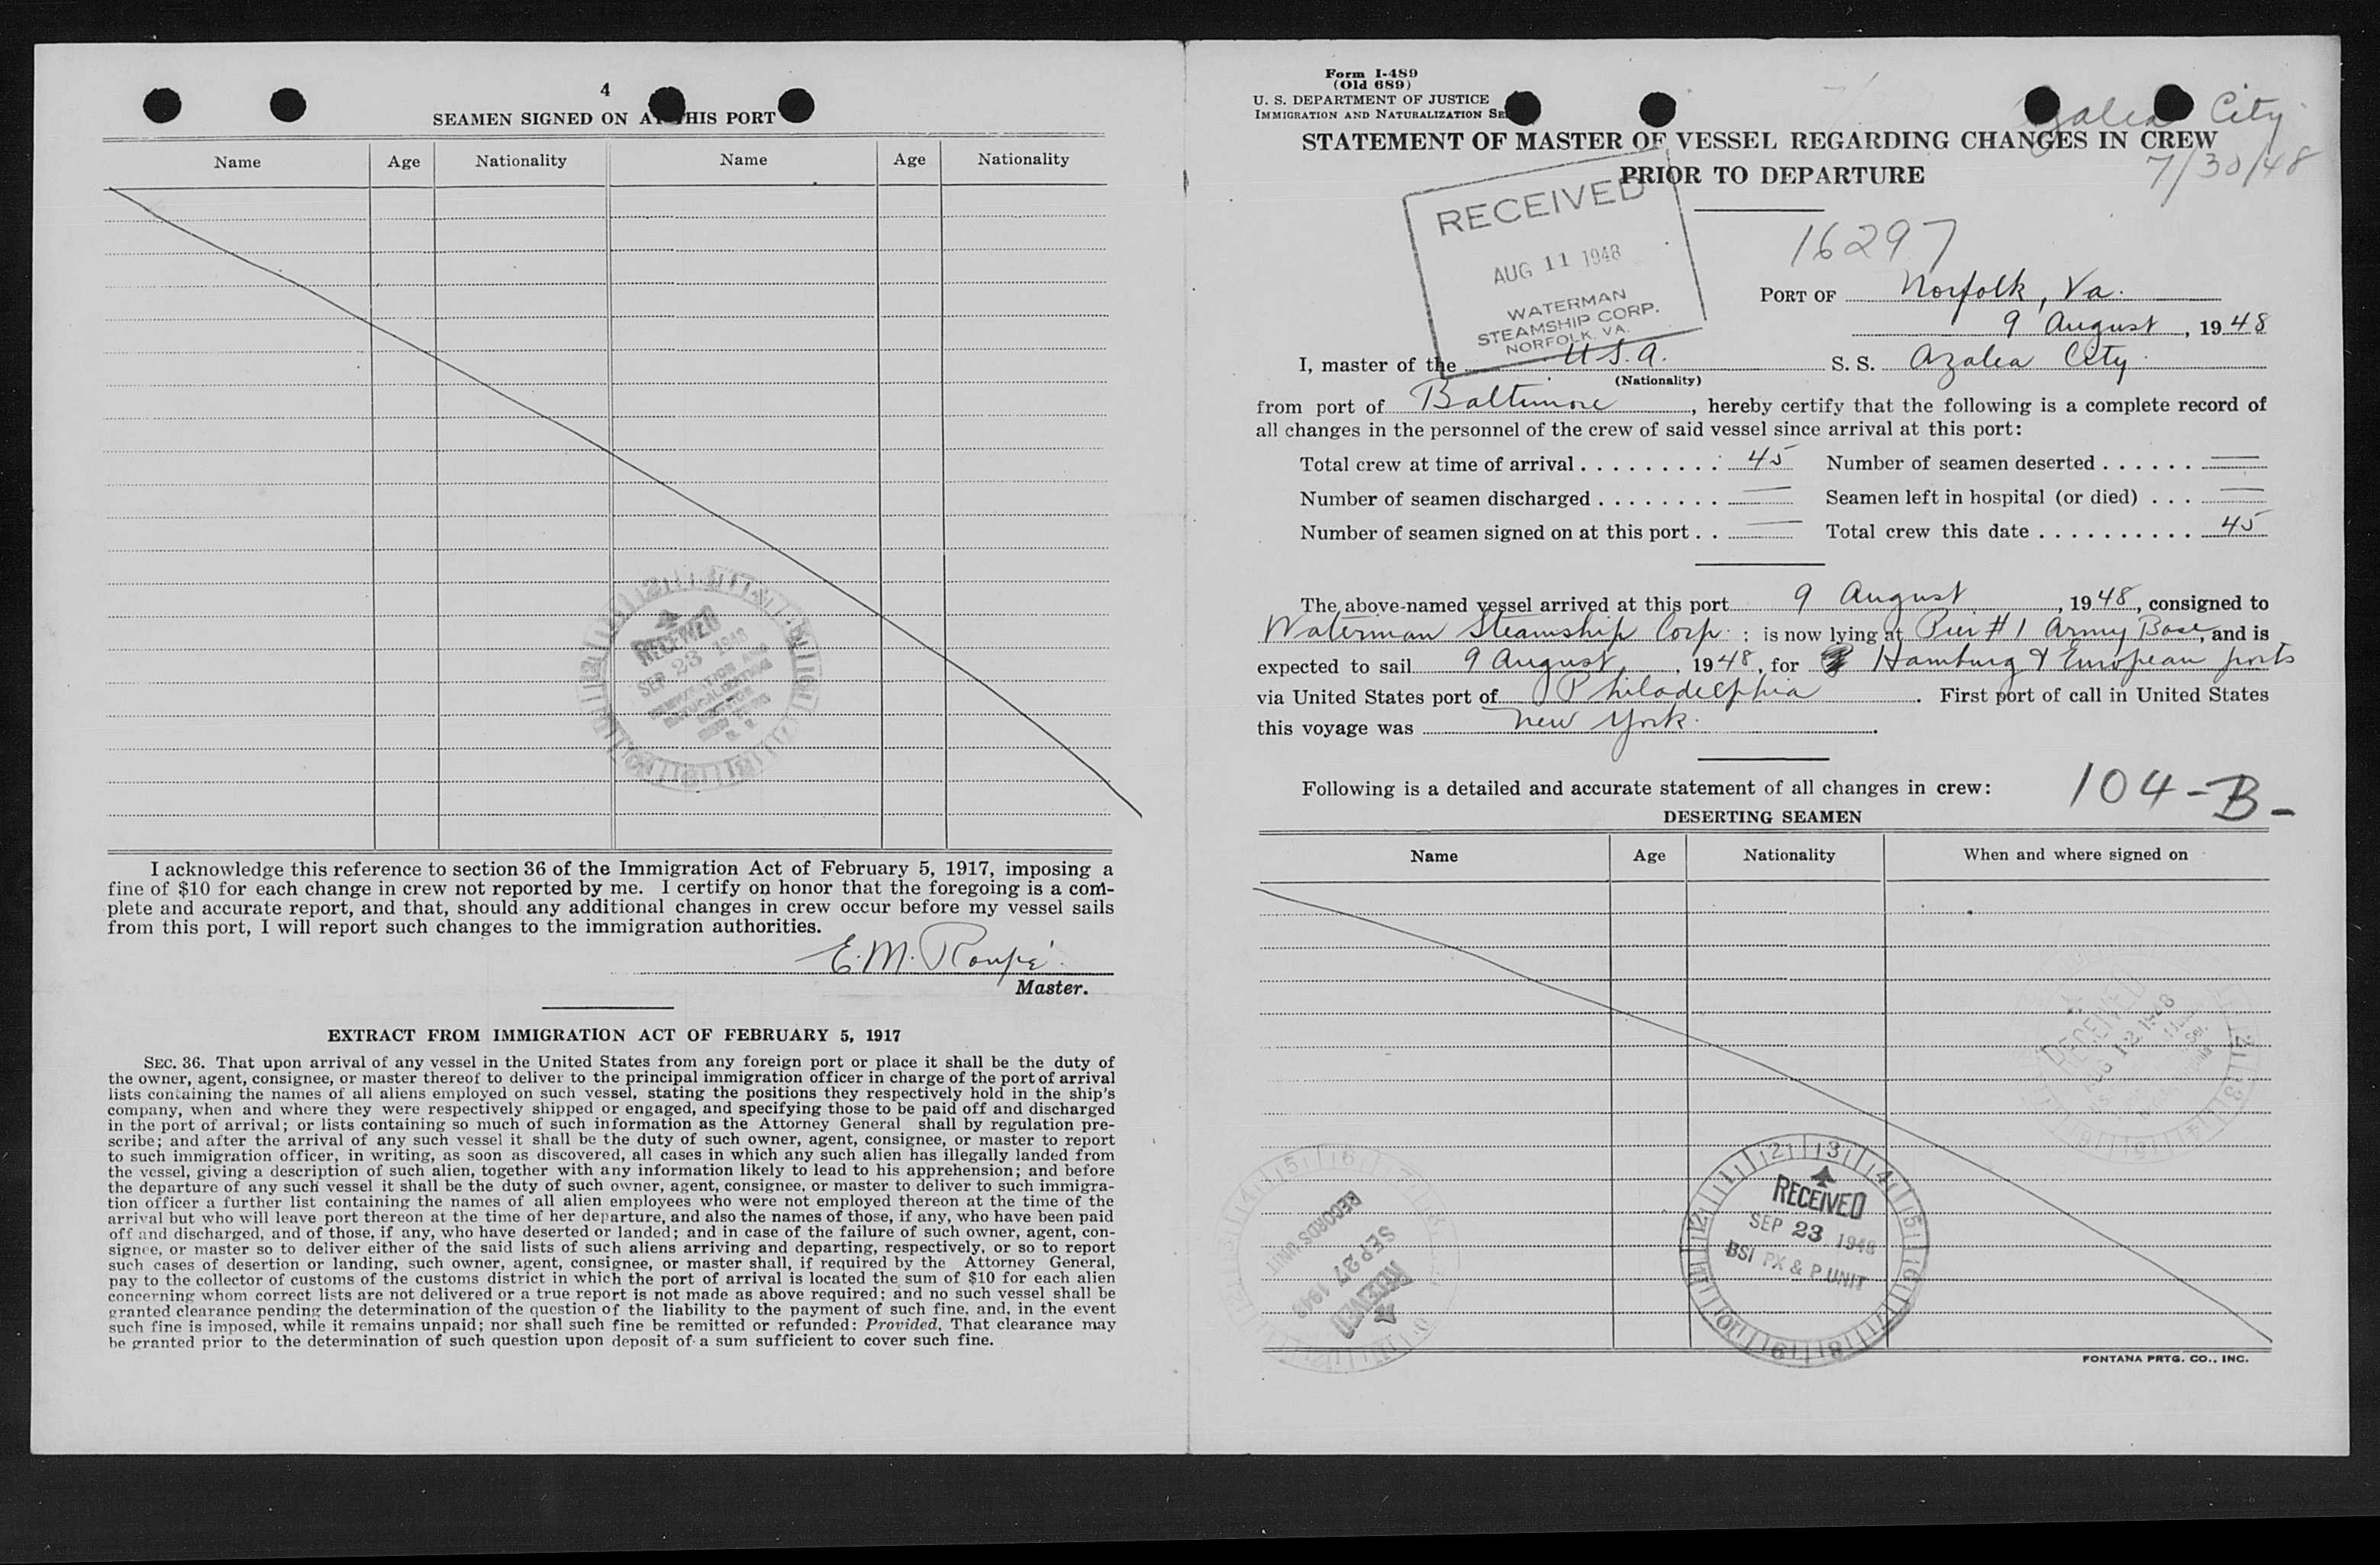 4
SEAMEN SIGNED ON AT THIS PORT
Name Age Nationality Name Age Nationality
RECEIVED
SEP 23 1948
I acknowledge this reference to section 36 of the Immigration Act of February 5, 1917, imposing a
fine of $10 for each change in crew not reported by me. I certify on honor that the foregoing is a com-
plete and accurate report, and that, should any additional changes in crew occur before my vessel sails
from this port, I will report such changes to the immigration authorities.
E. M. Roupe
Master.
EXTRACT FROM IMMIGRATION ACT OF FEBRUARY 5, 1917
SEC. 36. That upon arrival of any vessel in the United States from any foreign port or place it shall be the duty of
the owner, agent, consignee, or master thereof to deliver to the principal immigration officer in charge of the port of arrival
lists containing the names of all aliens employed on such vessel, stating the positions they respectively hold in the ship's
company, when and where they were respectively shipped or engaged, and specifying those to be paid off and discharged
in the port of arrival; or lists containing so much of such information as the Attorney General shall by regulation pre-
scribe; and after the arrival of any such vessel it shall be the duty of such owner, agent, consignee, or master to report
to such immigration officer, in writing, as soon as discovered, all cases in which any such alien has illegally landed from
the vessel, giving a description of such alien, together with any information likely to lead to his apprehension; and before
the departure of any such vessel it shall be the duty of such owner, agent, consignee, or master to deliver to such immigra-
tion officer a further list containing the names of all alien employees who were not employed thereon at the time of the
arrival but who will leave port thereon at the time of her departure, and also the names of those, if any, who have been paid
off and discharged, and of those, if any, who have deserted or landed; and in case of the failure of such owner, agent, con-
signee, or master so to deliver either of the said lists of such aliens arriving and departing, respectively, or so to report
such cases of desertion or landing, such owner, agent, consignee, or master shall, if required by the Attorney General,
pay to the collector of customs of the customs district in which the port of arrival is located the sum of $10 for each alien
concerning whom correct lists are not delivered or a true report is not made as above required; and no such vessel shall be
granted clearance pending the determination of the question of the liability to the payment of such fine, and, in the event
such fine is imposed, while it remains unpaid; nor shall such fine be remitted or refunded: Provided, That clearance may
be granted prior to the determination of such question upon deposit of a sum sufficient to cover such fine.
Form I-489
(Old 689)
U. S. DEPARTMENT OF JUSTICE
IMMIGRATION AND NATURALIZATION SE
Azalea City
STATEMENT OF MASTER OF VESSEL REGARDING CHANGES IN CREW
PRIOR TO DEPARTURE
7/30/48
RECEIVED
AUG 11 1948
WATERMAN
STEAMSHIP CORP.
NORFOLK, VA.
16297
PORT OF Norfolk, Va.
9 August, 1948
I, master of the U.S.A. S. S. Azalea City
(Nationality)
from port of Baltimore, hereby certify that the following is a complete record of
all changes in the personnel of the crew of said vessel since arrival at this port:
Total crew at time of arrival . . . . . . . . . 45 Number of seamen deserted . . . . . . —
Number of seamen discharged . . . . . . . . — Seamen left in hospital (or died) . . . —
Number of seamen signed on at this port . . — Total crew this date . . . . . . . . . . 45
The above-named vessel arrived at this port 9 August, 1948, consigned to
Waterman Steamship Corp. ; is now lying at Pier #1 Army Base, and is
expected to sail 9 August, 1948, for Hamburg & European ports
via United States port of Philadelphia. First port of call in United States
this voyage was New York.
Following is a detailed and accurate statement of all changes in crew:
104-B-
DESERTING SEAMEN
Name Age Nationality When and where signed on
RECEIVED
AUG 12 1948
RECORDS UNIT
SEP 27 1948
RECEIVED
RECEIVED
SEP 23 1948
BSI PX & P UNIT
FONTANA PRTG. CO., INC.